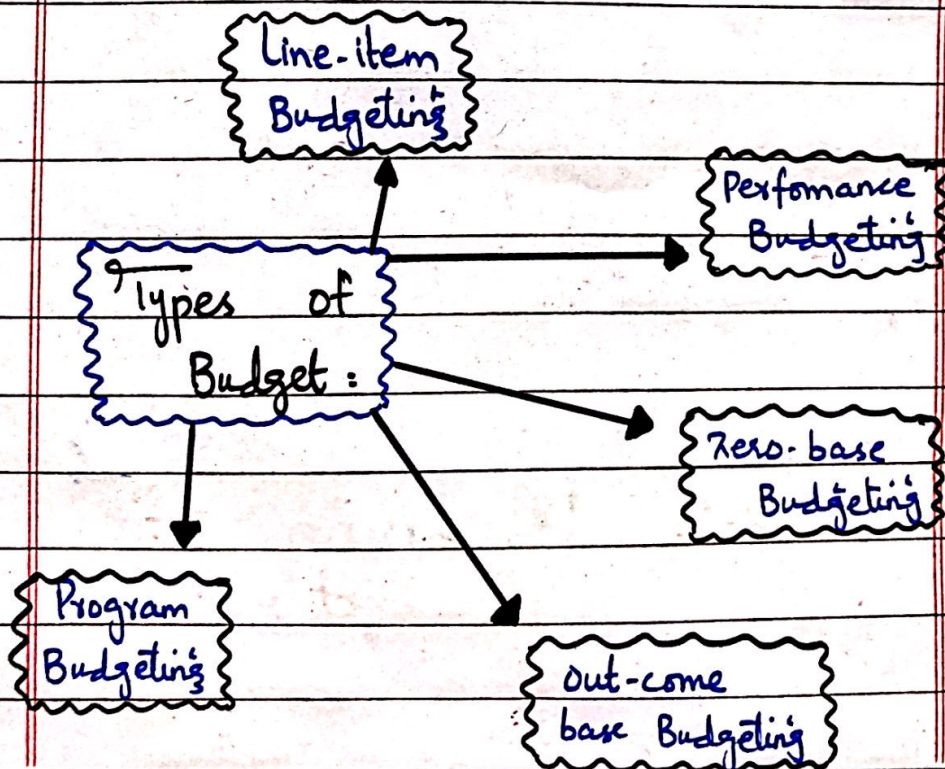 Line-item
Budgeting
Perfomance
Budgeting
Types of
Budget :
Zero-base
Budgeting
Program
Budgeting
out-come
base Budgeting